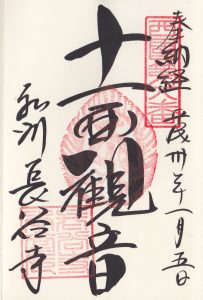 奉納経 平成卅年一月五日
十一面観音
和州 長谷寺